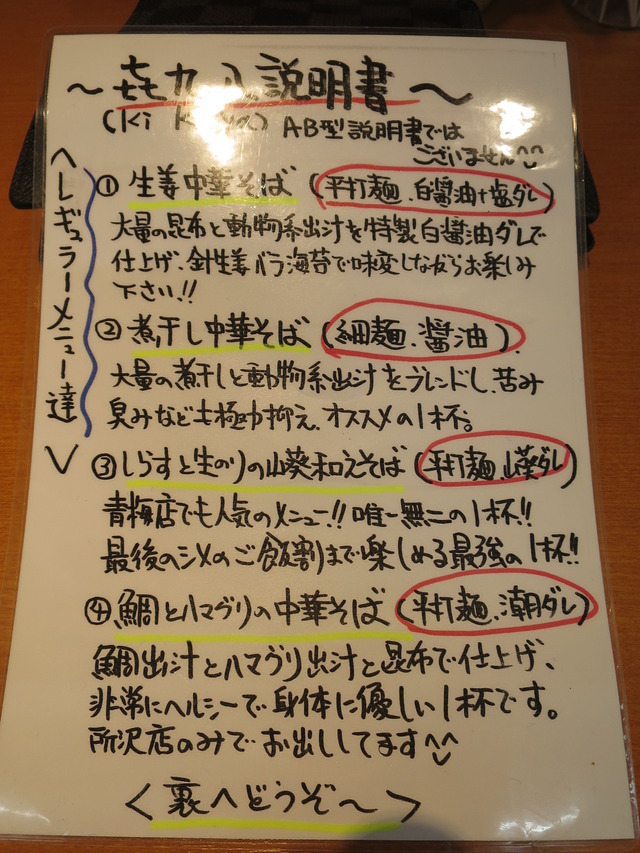 ～㐂九八説明書～
(Ki Ku ya) AB型説明書では
ございません^^
＜レギュラーメニュー達＞
① 生姜中華そば (平打麺、白醤油+塩ダレ)
大量の昆布と動物系出汁を特製白醤油ダレで
仕上げ、針生姜バラ海苔で味変しながらお楽しみ
下さい!!
② 煮干し中華そば (細麺、醤油)
大量の煮干しと動物系出汁をブレンドし、苦み
臭みなども極力抑え、オススメの1杯。
③ しらすと生のりの山葵和えそば (平打麺、山葵ダレ)
青梅店でも人気のメニュー!! 唯一無二の1杯!!
最後のシメのご飯割まで楽しめる最強の1杯!!
④ 鯛とハマグリの中華そば (平打麺、潮ダレ)
鯛出汁とハマグリ出汁と昆布で仕上げ、
非常にヘルシーで身体に優しい1杯です。
所沢店のみでお出ししてます^^
＜裏へどうぞ～＞